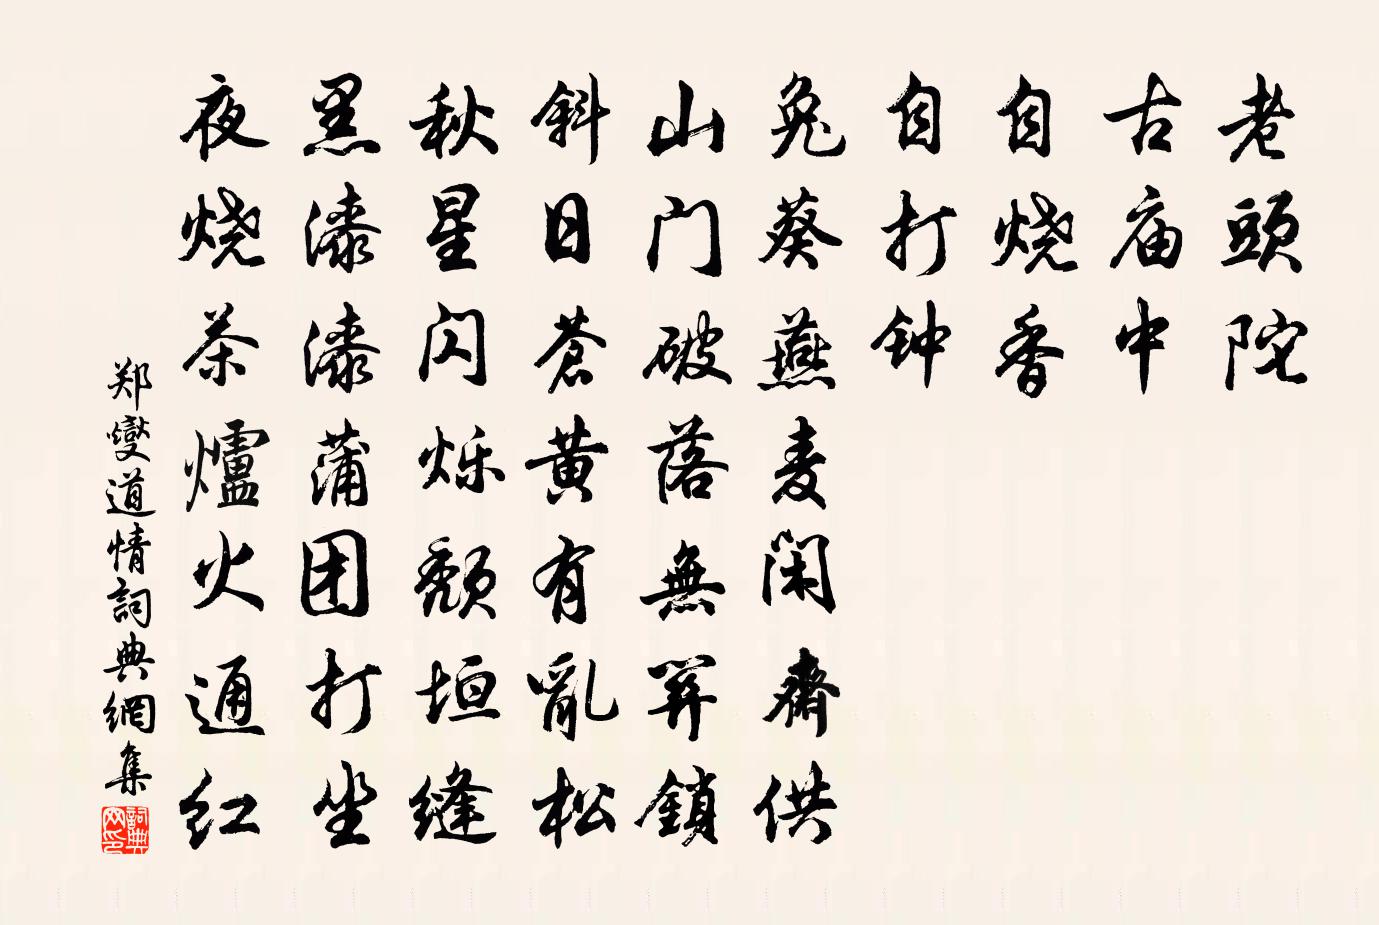 老頭陀
古庙中
自烧香
自打钟
兔葵燕麦闲齋供
山门破落無関鎖
斜日蒼黄有亂松
秋星闪烁颓垣缝
黒漆漆蒲团打坐
夜烧茶爐火通红
郑燮道情詞典網集
詞典网印